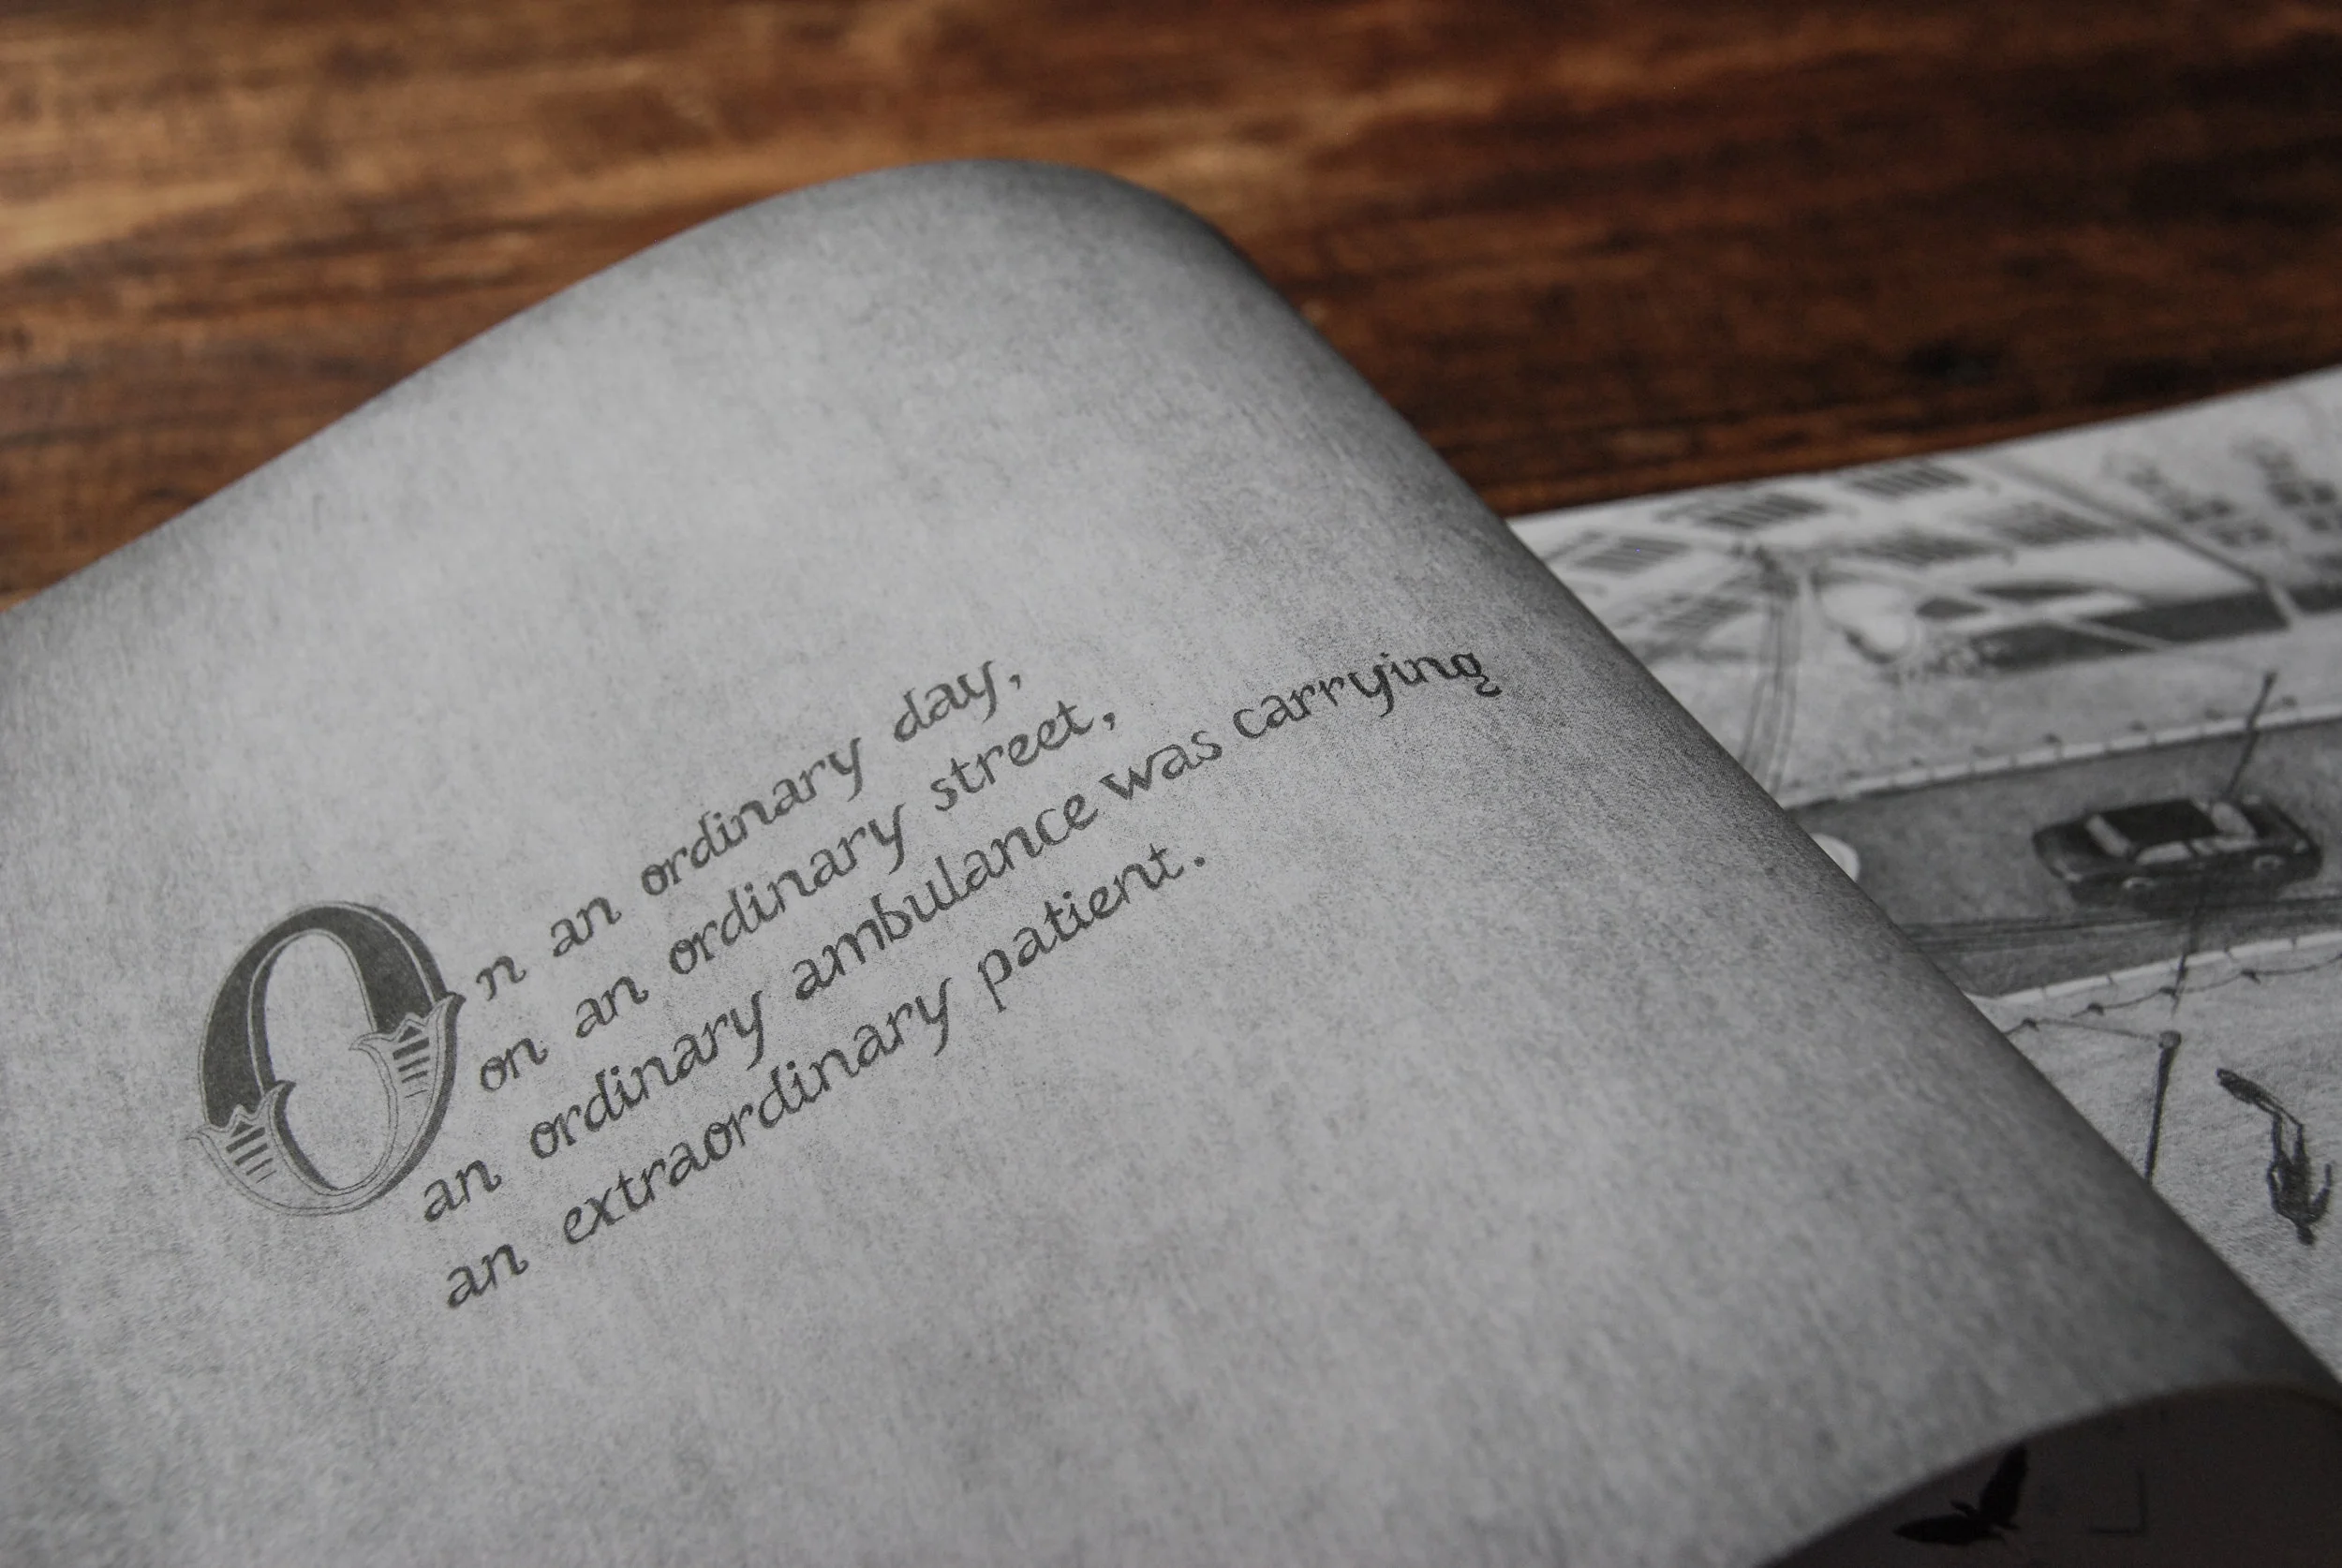 On an ordinary day,
on an ordinary street,
an ordinary ambulance was carrying
an extraordinary patient.